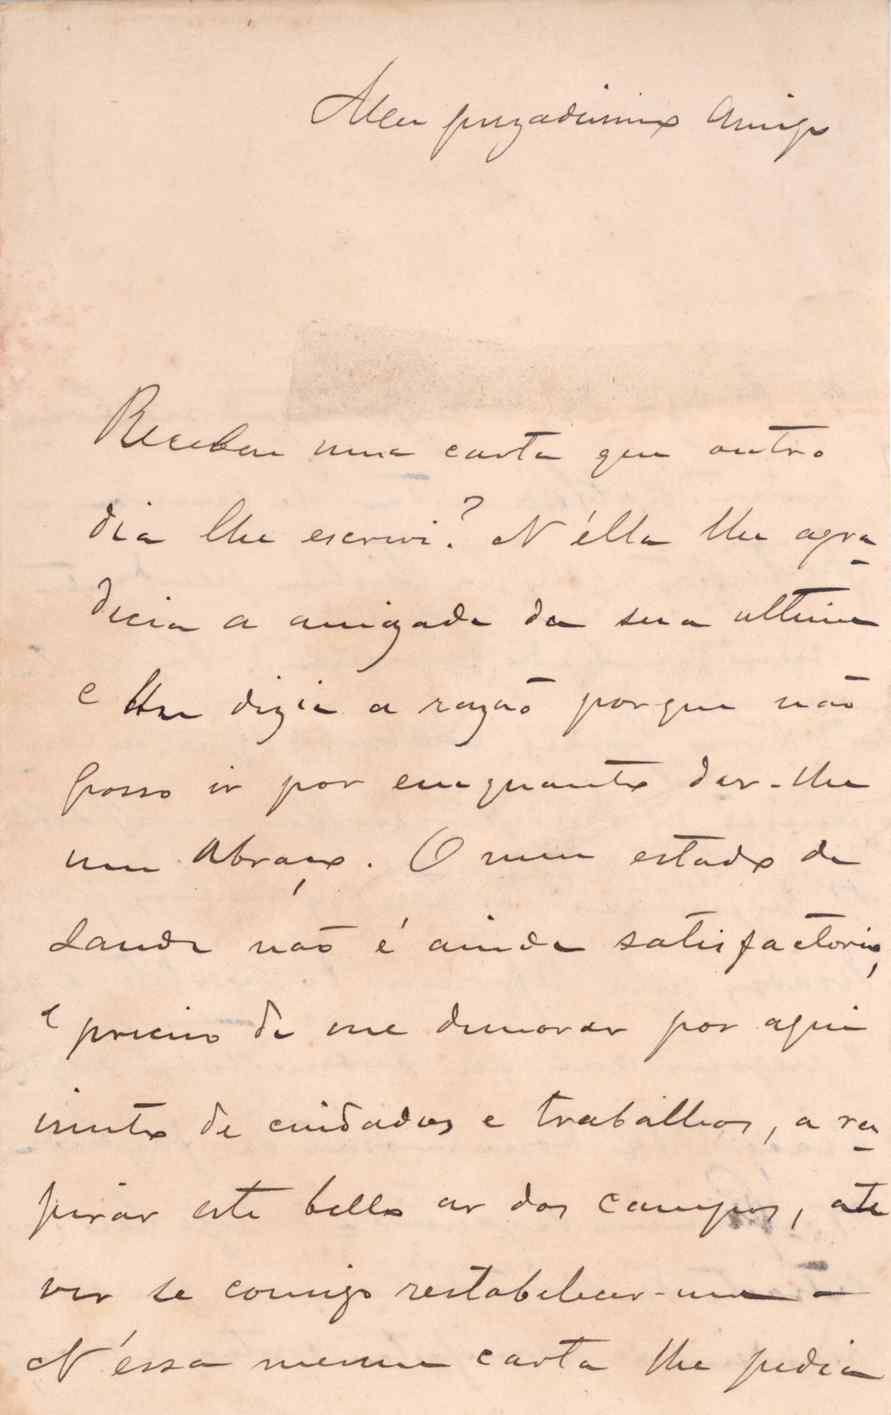 Meu prezadissimo Amigo
Recebeu uma carta que outro
dia lhe escrevi? N'élla lhe agra-
decia a amizade da sua ultima
e lhe dizia a razão porque não
posso ir por emquanto dar-lhe
um abraço. O meu estado de
saude não é ainda satisfactorio,
e preciso de me demorar por aqui
isento de cuidados e trabalhos, a res-
pirar este bello ar dos campos, até
ver se comigo restabelecer-me —
N'éssa mesma carta lhe pedia